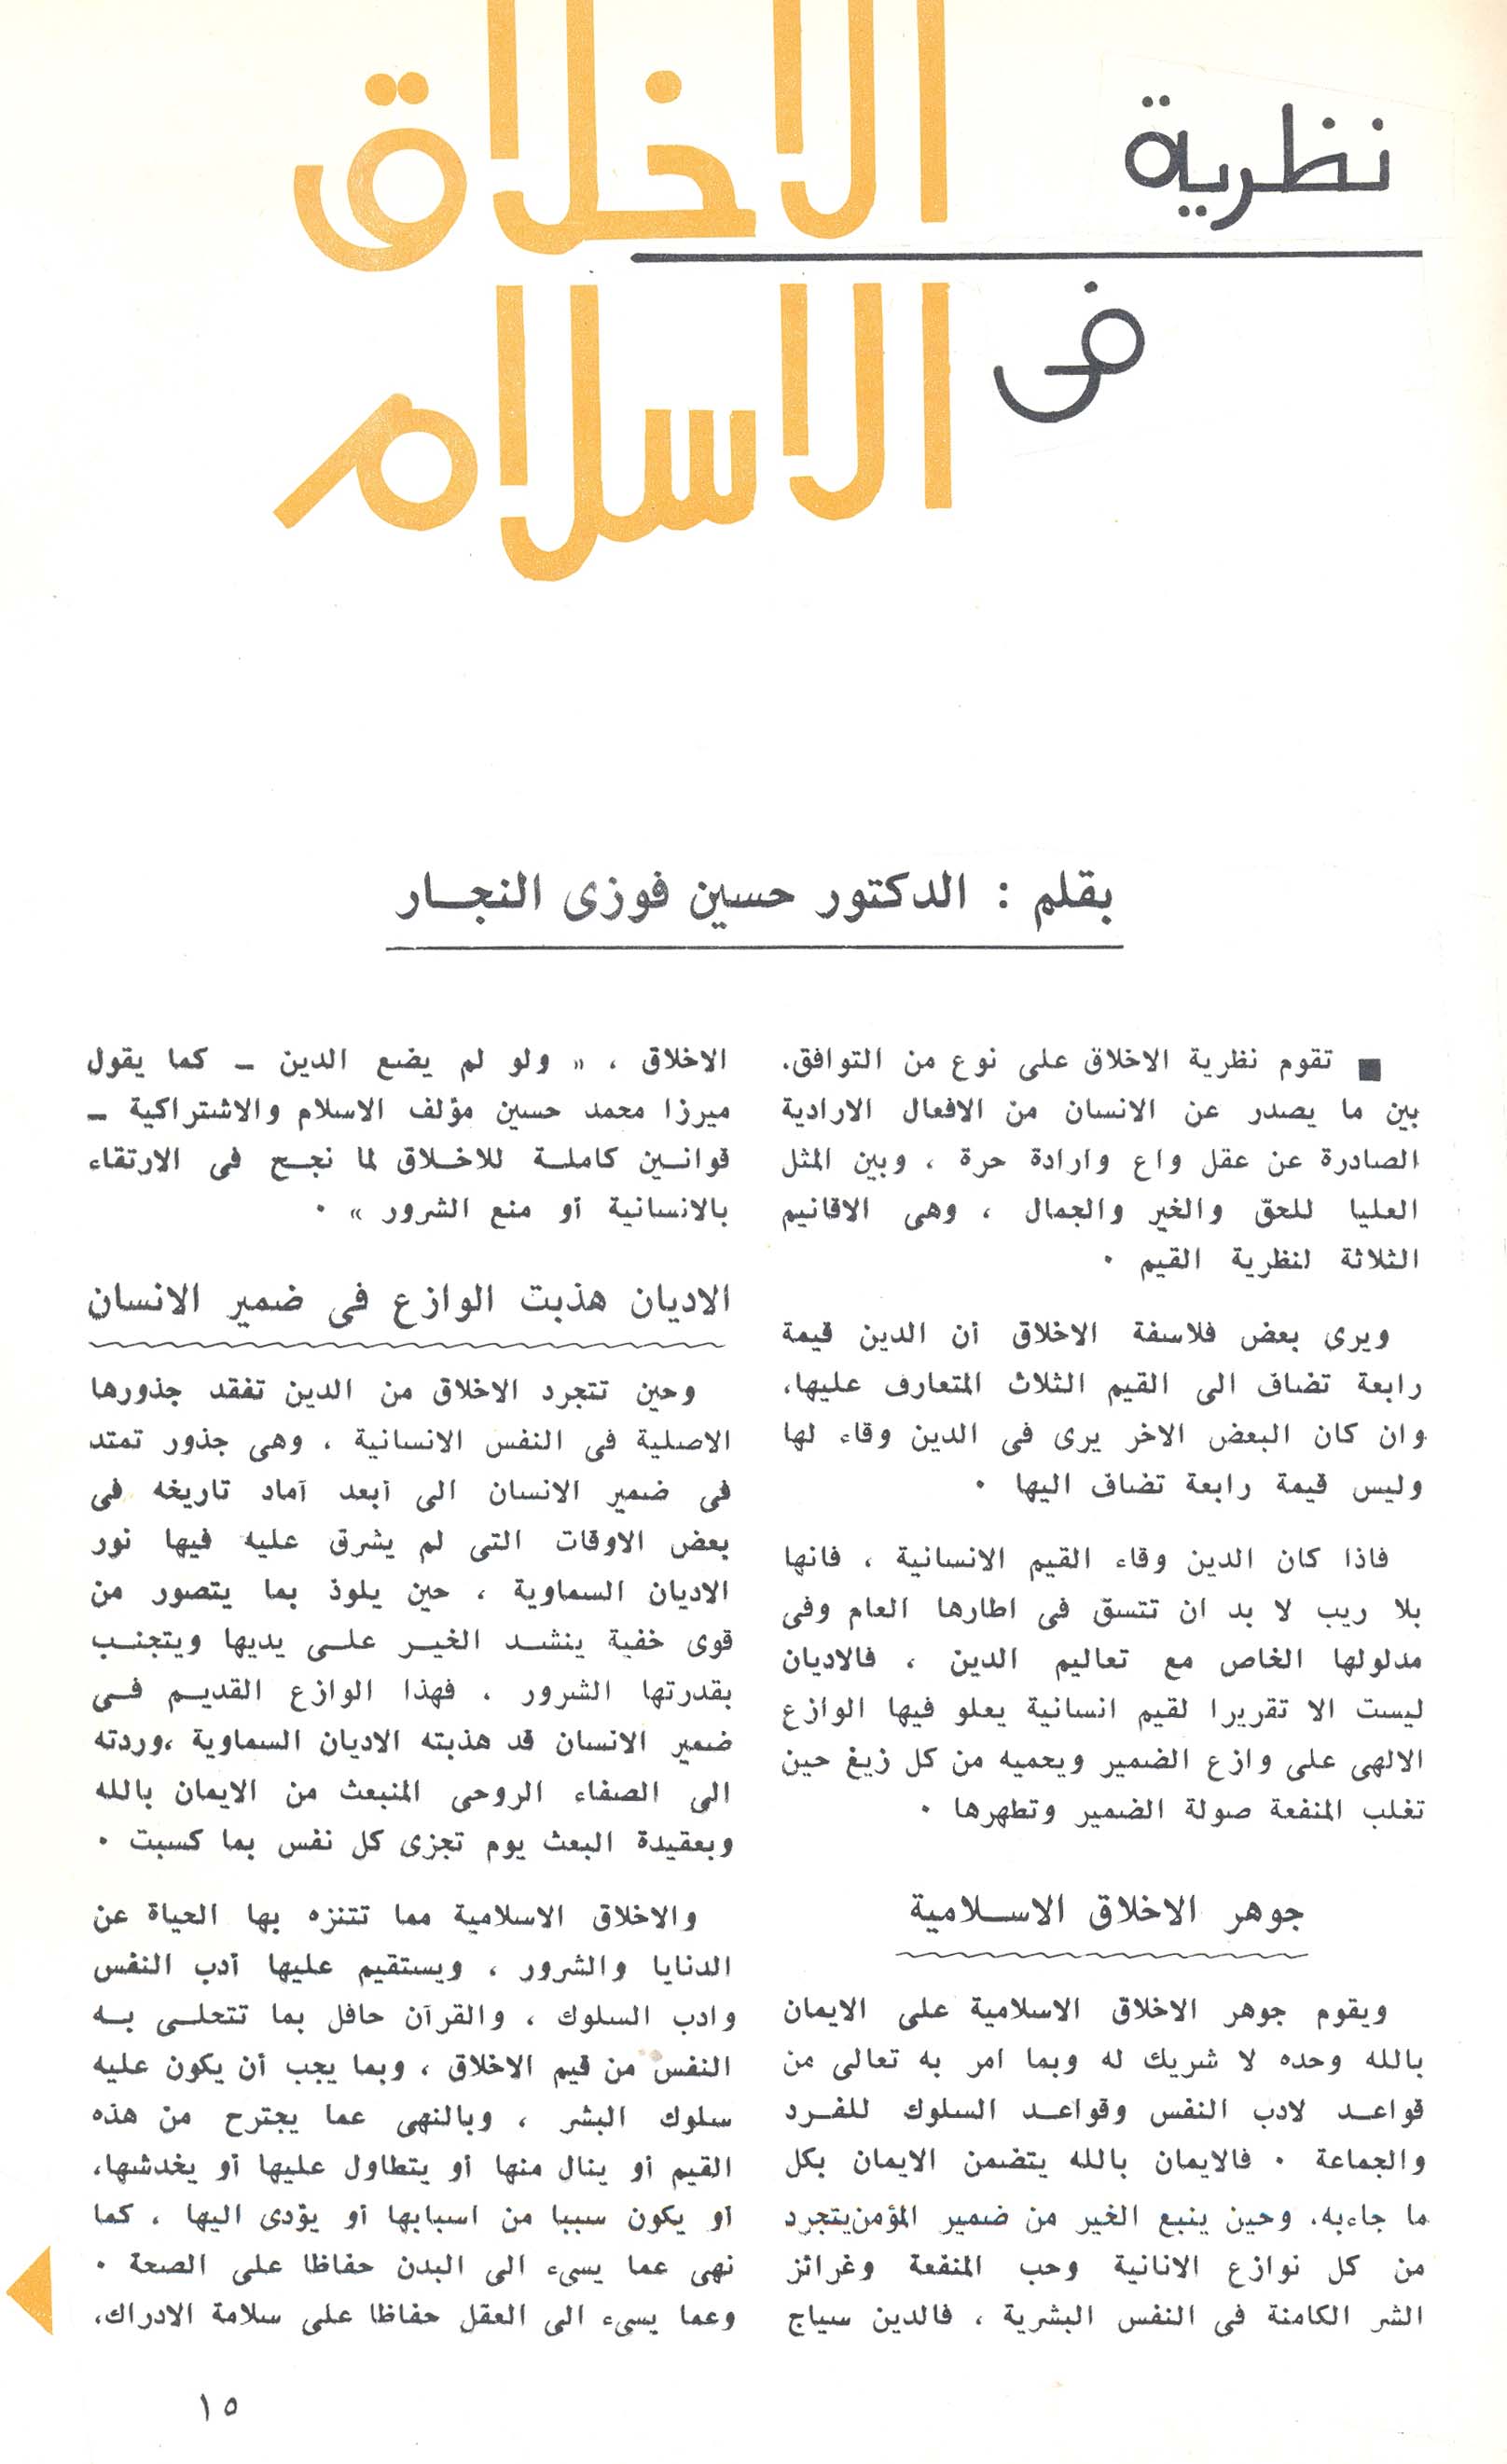 نظرية
الاخلاق
فى
الاسلام
بقلم : الدكتور حسين فوزى النجـار
■ تقوم نظرية الاخلاق على نوع من التوافق.
بين ما يصدر عن الانسان من الافعال الارادية
الصادرة عن عقل واع وارادة حرة ، وبين المثل
العليا للحقّ والخير والجمال ، وهى الاقانيم
الثلاثة لنظرية القيم ٠
ويرى بعض فلاسفة الاخلاق أن الدين قيمة
رابعة تضاف الى القيم الثلاث المتعارف عليها،
وان كان البعض الاخر يرى فى الدين وقاء لها
وليس قيمة رابعة تضاف اليها ٠
فاذا كان الدين وقاء القيم الانسانية ، فانها
بلا ريب لا بد ان تتسق فى اطارها العام وفى
مدلولها الخاص مع تعاليم الدين ، فالاديان
ليست الا تقريرا لقيم انسانية يعلو فيها الوازع
الالهى على وازع الضمير ويحميه من كل زيغ حين
تغلب المنفعة صولة الضمير وتطهرها ٠
جوهر الاخلاق الاسـلامية
ويقوم جوهر الاخلاق الاسلامية على الايمان
بالله وحده لا شريك له وبما امر به تعالى من
قواعـد لادب النفس وقواعـد السلوك للفـرد
والجماعة ٠ فالايمان بالله يتضمن الايمان بكل
ما جاءبه، وحين ينبع الخير من ضمير المؤمن يتجرد
من كل نوازع الانانية وحب المنفعة وغرائز
الشر الكامنة فى النفس البشرية ، فالدين سياج
الاخلاق ، « ولو لم يضع الدين ـ كما يقول
ميرزا محمد حسين مؤلف الاسلام والاشتراكية ـ
قوانـين كاملـة للاخـلاق لما نجـح فى الارتقاء
بالانسانية أو منع الشرور » ٠
الاديان هذبت الوازع فى ضمير الانسان
وحين تتجرد الاخلاق من الدين تفقد جذورها
الاصلية فى النفس الانسانية ، وهى جذور تمتد
فى ضمير الانسان الى أبعد آماد تاريخه فى
بعض الاوقات التى لم يشرق عليه فيها نور
الاديان السماوية ، حين يلوذ بما يتصور من
قوى خفية ينشـد الخيـر علـى يديها ويتجنـب
بقدرتها الشرور ، فهذا الوازع القديـم فـى
ضمير الانسان قد هذبته الاديان السماوية ،وردته
الى الصفاء الروحى المنبعث من الايمان بالله
وبعقيدة البعث يوم تجزى كل نفس بما كسبت ٠
والاخلاق الاسلامية مما تتنزه بها الحياة عن
الدنايا والشرور ، ويستقيم عليها أدب النفس
وادب السلوك ، والقرآن حافل بما تتحلـى بـه
النفس من قيم الاخلاق ، وبما يجب أن يكون عليه
سلوك البشر ، وبالنهى عما يجترح من هذه
القيم أو ينال منها أو يتطاول عليها أو يخدشها،
أو يكون سببا من اسبابها أو يؤدى اليها ، كما
نهى عما يسىء الى البدن حفاظا على الصحة ٠
وعما يسىء الى العقل حفاظا على سلامة الادراك،
١٥